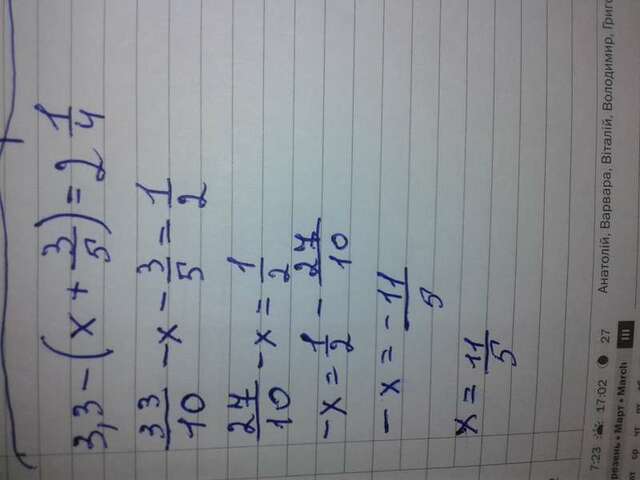 3,3 - (x + 3/5) = 2 1/4
33/10 - x - 3/5 = 1/2
27/10 - x = 1/2
-x = 1/2 - 27/10
-x = -11/5
x = 11/5
7:23 17:02 27 Анатолій, Варвара, Віталій, Володимир,
резень • Март • March III
ср чт пт